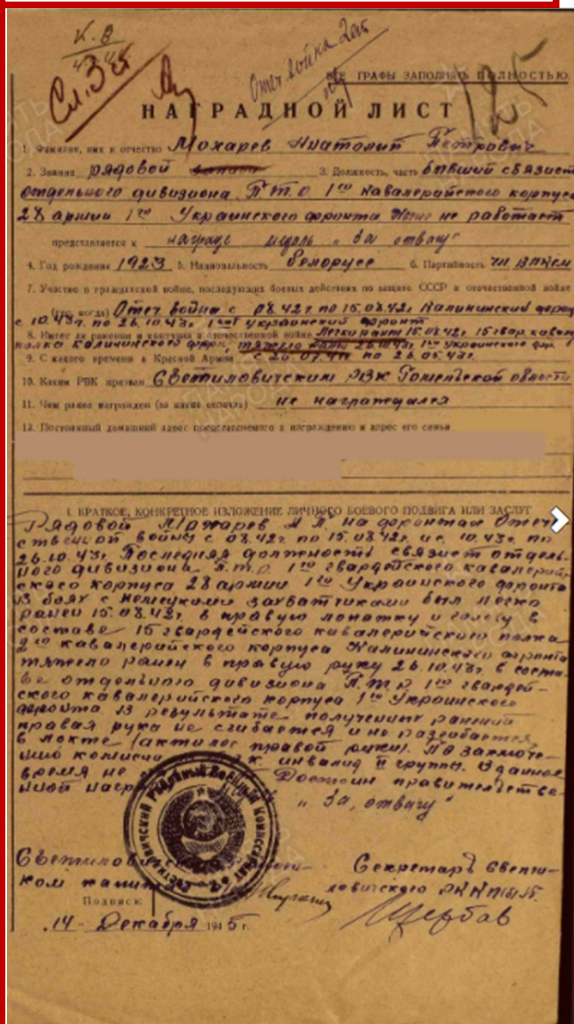 К.В
Сл. 3 ст
Отеч война 2 ст
125
ВСЕ ГРАФЫ ЗАПОЛНЯТЬ ПОЛНОСТЬЮ
НАГРАДНОЙ ЛИСТ
1. Фамилия, имя и отчество Мохарев Анатолий Петрович
2. Звание рядовой 3. Должность, часть бывший связист
отдельного дивизиона П.Т.О. 1го кавалерийского корпуса
28 армии 1го Украинского фронта не работает
представляется к награде медаль „За отвагу"
4. Год рождения 1923 5. Национальность белорусс 6. Партийность чл. ВЛКСМ
7. Участие в гражданской войне, последующих боевых действиях по защите СССР и отечественной войне
(где, когда) Отеч война с 08.42 г. по 15.08.42 г. Калининский фронт
с 10.43 г. по 26.10.43 г. 1й Украинский фронт
8. Имеет ли ранения и контузии в отечественной войне легко ран 15.08.42 г. 15 гвар. кавал
полка Калининского фрон. тяжело ранен 26.10.43 г. 1го Украинского фр.
9. С какого времени в Красной Армии по 26.05.43 г.
10. Каким РВК призван Светиловичским РВК Гомельской области
11. Чем ранее награжден (за какие отличия) не награждался
12. Постоянный домашний адрес представляемого к награждению и адрес его семьи
I. КРАТКОЕ, КОНКРЕТНОЕ ИЗЛОЖЕНИЕ ЛИЧНОГО БОЕВОГО ПОДВИГА ИЛИ ЗАСЛУГ
Рядовой Мохарев А П на фронтах Отече
ственной войны с 08.42 г. по 15.08.42 г. и с 10.43 г. по
26.10.43 г. Последняя должность связист отдель
ного дивизиона П.Т.О. 1го гвардейского кавалерий
ского корпуса 28 армии 1го Украинского фронта
В боях с немецкими захватчиками был легко
ранен 15.08.42 г. в правую лопатку и голову в
составе 15 гвардейского кавалерийского полка
2го кавалерийского корпуса Калининского фронта
тяжело ранен в правую руку 26.10.43 г. в соста
ве отдельного дивизиона П.Т.О. 1го гвардей-
ского кавалерийского корпуса 1го Украинского
фронта. В результате полученных ранений
правая рука не сгибается и не разгибается
в локте (правой руки). По заключе-
нию комиссии инвалид II группы. В данное
время не Достоин правительстве
нной наград
„За отвагу"
Секретарь Свети-
ком капитан ловичского РККП(б)Б
Подпись
Щербов
14 - Декабря 1945 г.